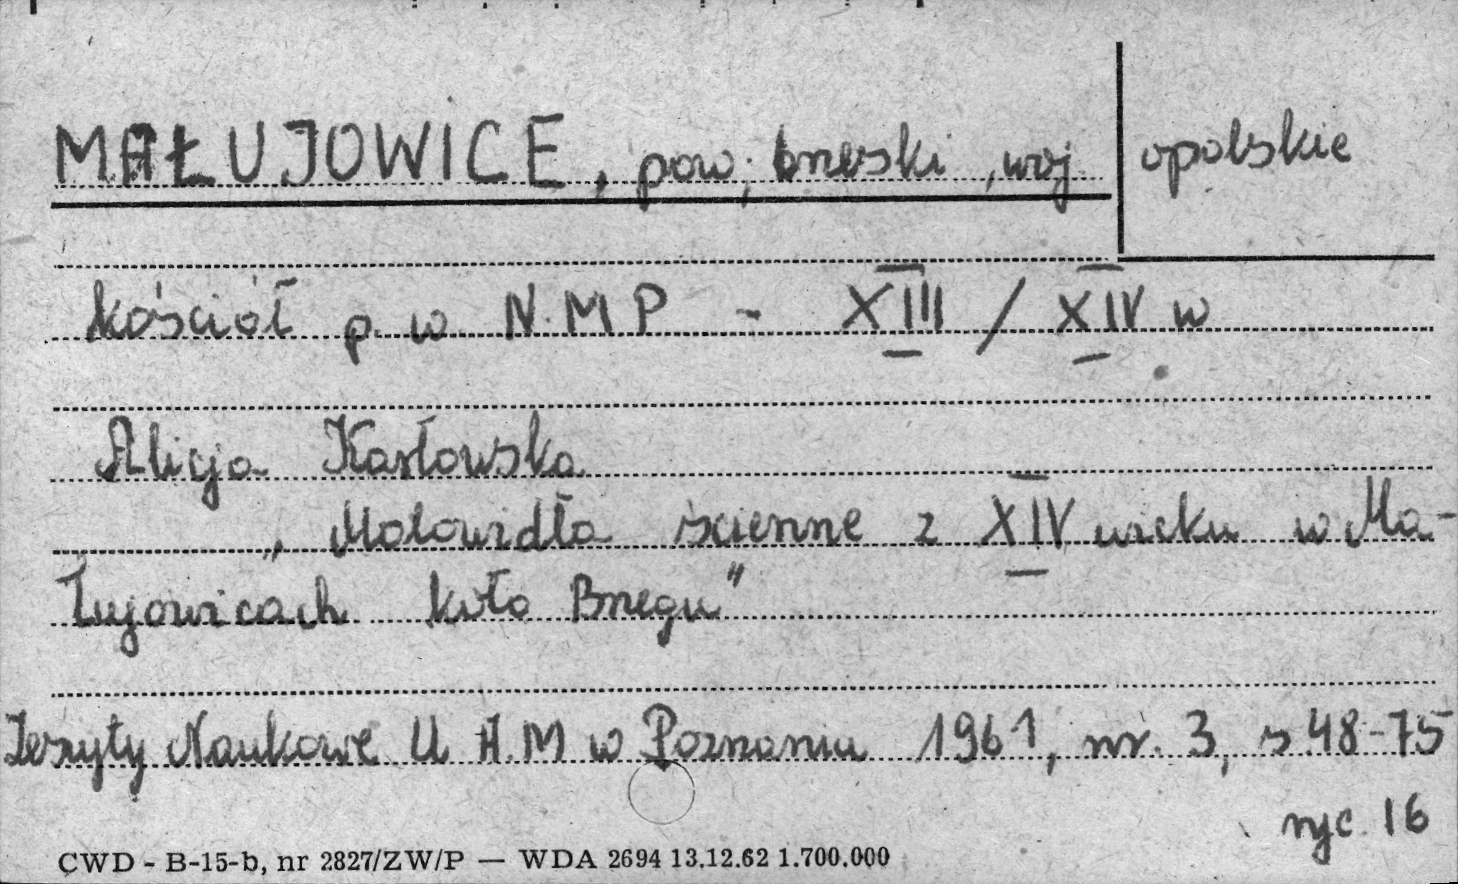 MAŁUJOWICE, pow. brzeski, woj. opolskie
kościół p. w N.M P - XIII / XIV w
Alicja Karłowska
„Malowidła ścienne z XIV wieku w Ma-
łujowicach koło Brzegu"
Zeszyty Naukowe U A.M w Poznaniu 1961, nr. 3, s 48-75
ryc 16
CWD - B-15-b, nr 2827/ZW/P — WDA 2694 13.12.62 1.700.000